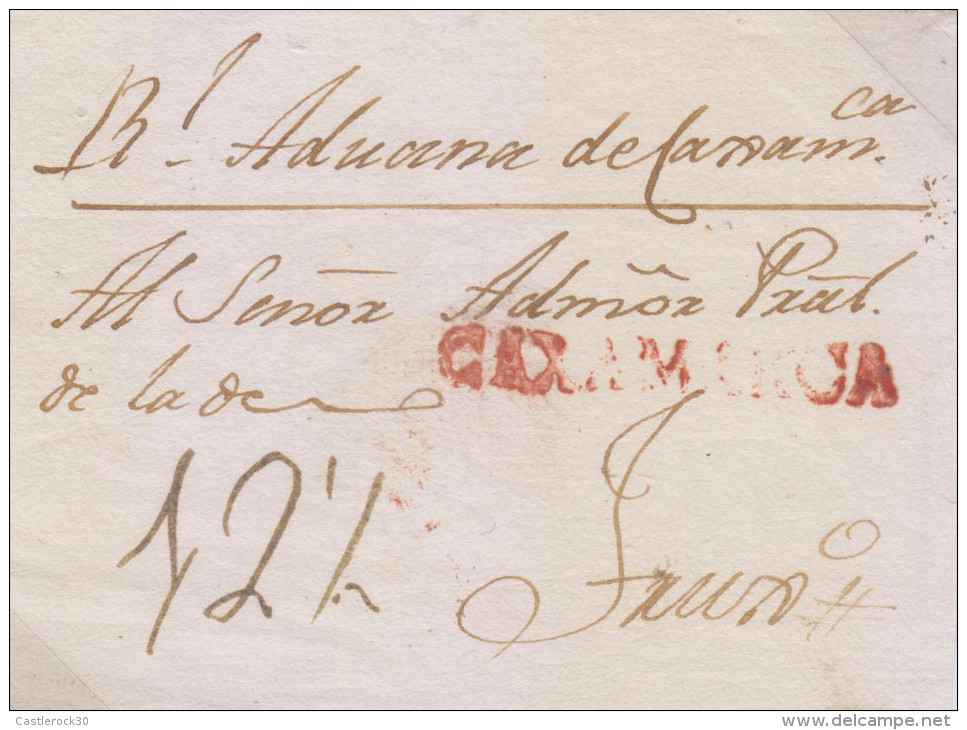 Rl. Aduana de Caxamca.
Al Señor Admōr Pral.
CAXAMARCA
de la de
12½
Truxo
Castlerock30
www.delcampe.net